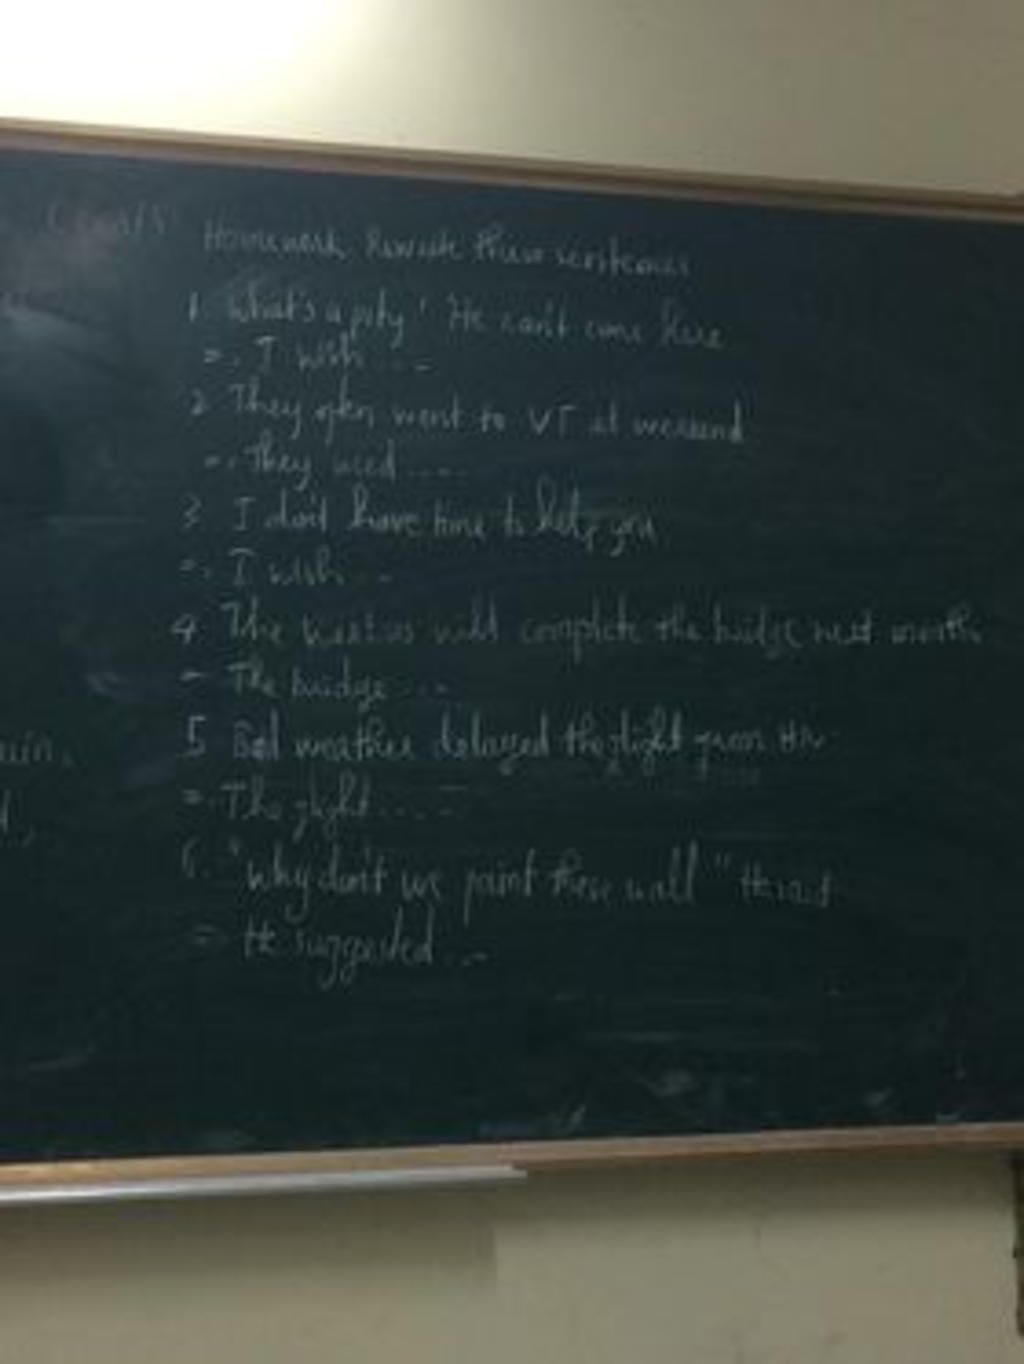 Homework Rewrite these sentences
1 What's a pity! He can't come here
=. I wish ...
2 They often went to VT at weekend
=. They used ....
3 I don't have time to help you
=. I wish ...
4 The will complete the bridge next month
= The bridge ...
5 Bad weather delayed the flight from
= The flight .....
6. "Why don't we paint these wall" He said
= He suggested ...